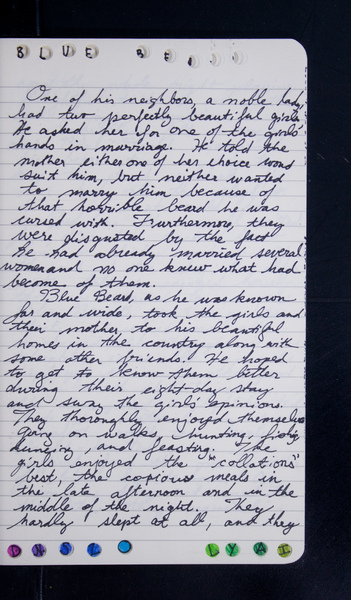 BLUE BE
One of his neighbors, a noble lady,
had two perfectly beautiful girls.
He asked her for one of the girls'
hands in marriage. He told the
mother either one of her choice would
suit him, but neither wanted
to marry him because of
that horrible beard he was
cursed with. Furthermore, they
were disgusted by the fact
he had already married several
women and no one knew what had
become of them.
Blue Beard, as he was known
far and wide, took the girls and
their mother to his beautiful
homes in the country along with
some other friends. He hoped
to get to know them better
during their eight-day stay
and sway the girls' opinions.
They thoroughly enjoyed themselves
going on walks, hunting, fishing,
dancing, and feasting. The
girls enjoyed the "collations"
best, the copious meals in
the late afternoon and in the
middle of the night. They
hardly slept at all, and they
LYAI